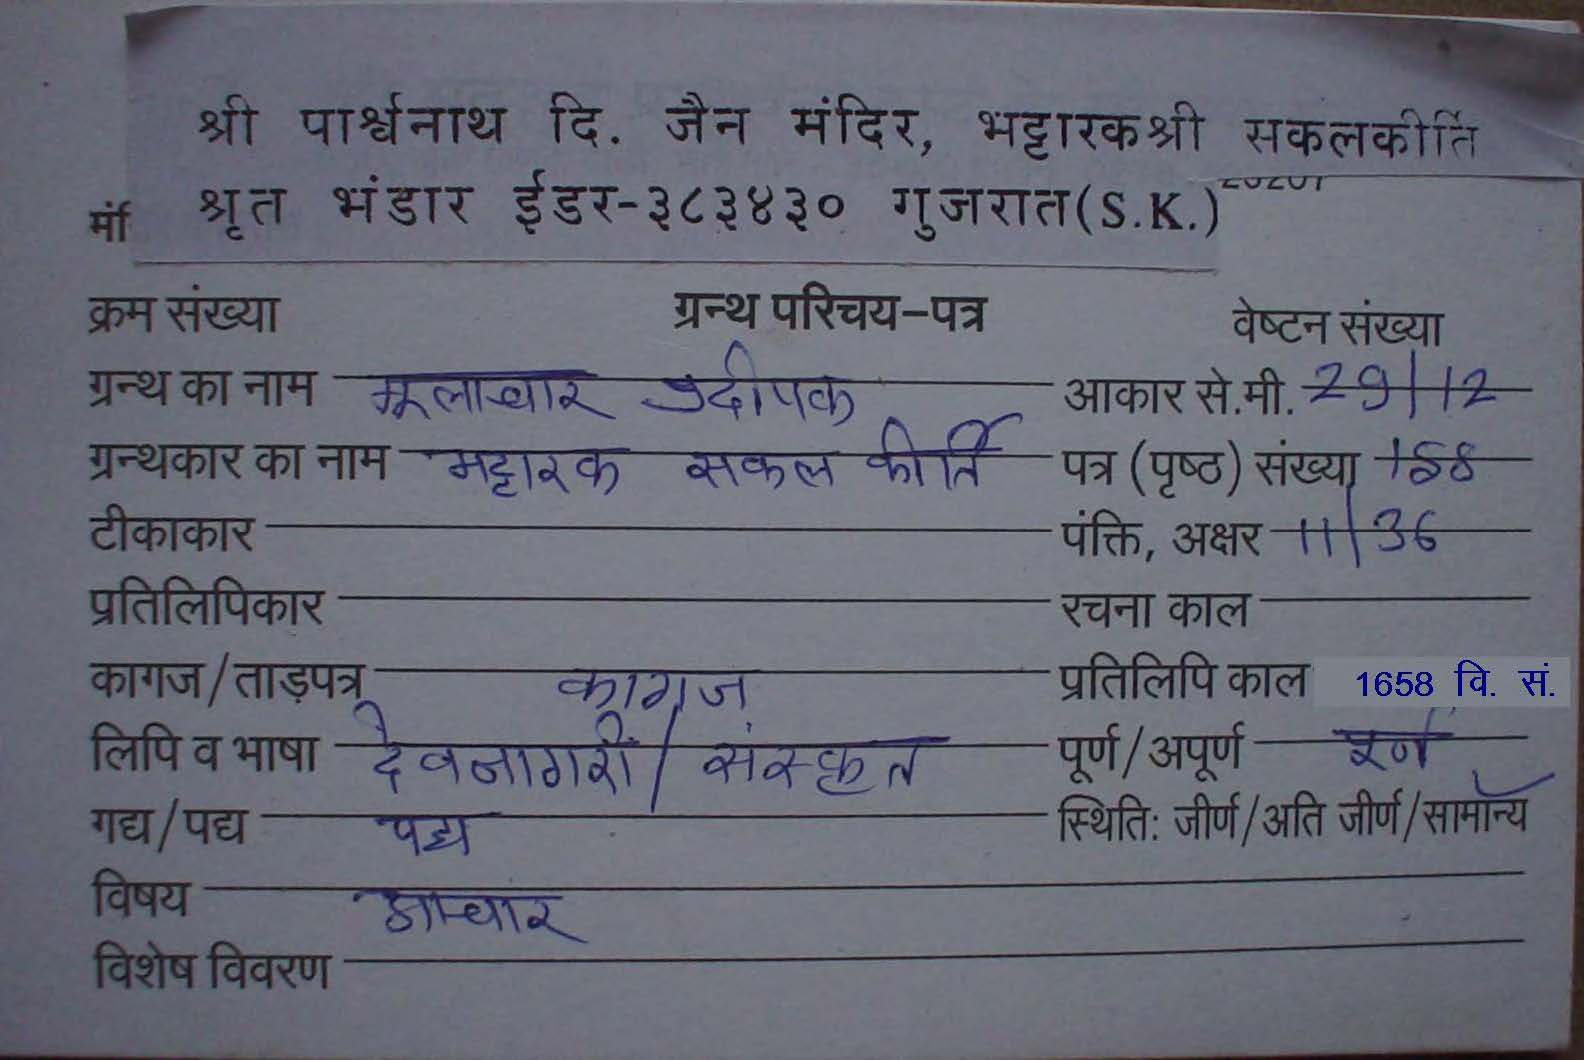 श्री पार्श्वनाथ दि. जैन मंदिर, भट्टारकश्री सकलकीर्ति
माँ श्रृत भंडार ईडर-३८३४३० गुजरात(S.K.)
क्रम संख्या ग्रन्थ परिचय-पत्र वेष्टन संख्या
ग्रन्थ का नाम मूलाचार प्रदीपक आकार से.मी. 29/12
ग्रन्थकार का नाम भट्टारक सकल कीर्ति पत्र (पृष्ठ) संख्या
टीकाकार पंक्ति, अक्षर 11/36
प्रतिलिपिकार रचना काल
कागज/ताड़पत्र कागज प्रतिलिपि काल 1658 वि. सं.
लिपि व भाषा देवनागरी/संस्कृत पूर्ण/अपूर्ण पूर्ण
गद्य/पद्य पद्य स्थिति: जीर्ण/अति जीर्ण/सामान्य
विषय आचार
विशेष विवरण